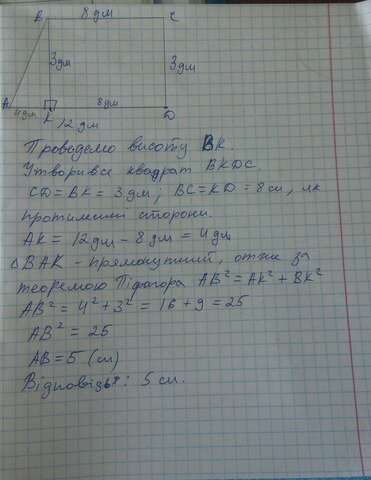 8 дм
B C
3 дм 3 дм
A 4 дм K 8 дм D
12 дм
Проведемо висоту BK.
Утворився квадрат BKDC.
CD = BK = 3 дм; BC = KD = 8 см, як
протилежні сторони.
AK = 12 дм - 8 дм = 4 дм
△ BAK - прямокутний, отже за
теоремою Піфагора AB² = AK² + BK²
AB² = 4² + 3² = 16 + 9 = 25
AB² = 25
AB = 5 (см)
Відповідь: 5 см.